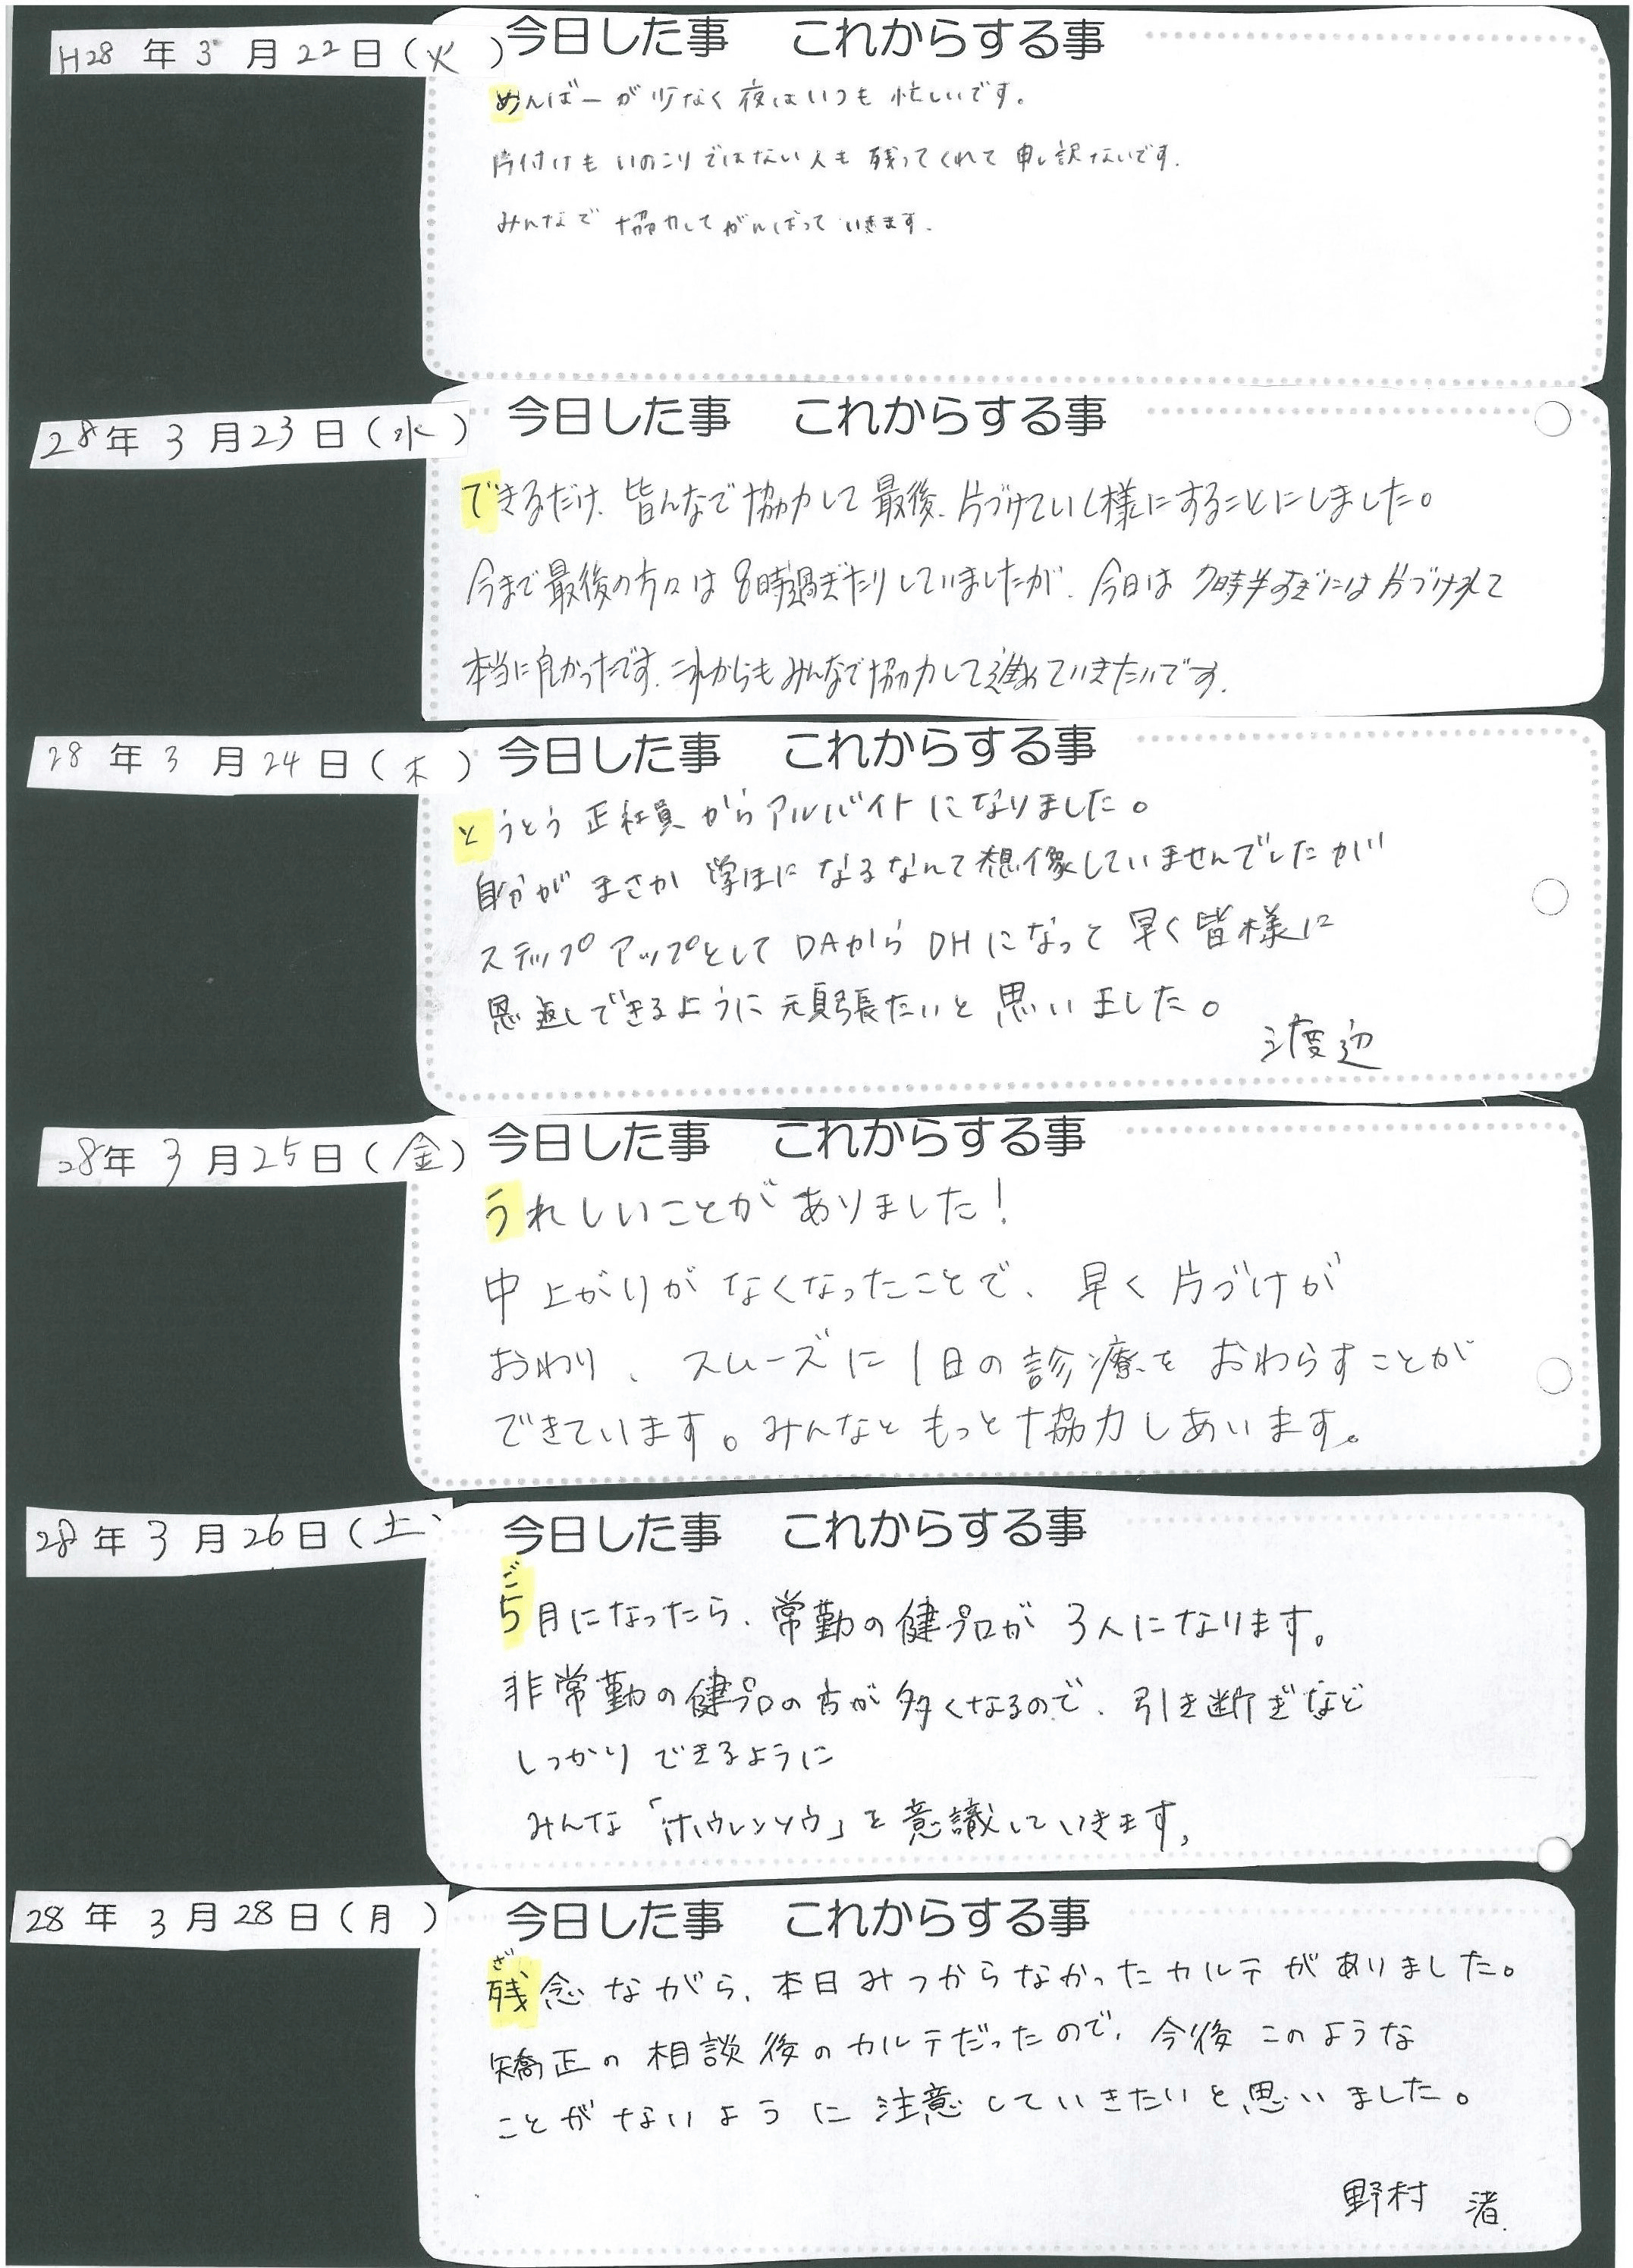 H28年3月22日(火)
今日した事 これからする事
めんばーが少なく夜はいつも忙しいです。
片付けもいのこりではない人も残ってくれて申し訳ないです.
みんなで協力してがんばっていきます.
28年3月23日(水)
今日した事 これからする事
できるだけ、皆んなで協力して最後、片づけていく様にすることにしました。
今まで最後の方々は8時過ぎたりしていましたが、今日は7時半すぎには片づけれて
本当に良かったです.これからもみんなで協力して進めていきたいです.
28年3月24日(木)
今日した事 これからする事
とうとう正社員からアルバイトになりました。
自分がまさか学生になるなんて想像していませんでしたが
ステップアップとしてDAからDHになって早く皆様に
恩返しできるように頑張たいと思いました。
渡辺
28年3月25日(金)
今日した事 これからする事
うれしいことがありました!
中上がりがなくなったことで、早く片づけが
おわり、スムーズに1日の診療をおわらすことが
できています。みんなともっと協力しあいます。
28年3月26日(土)
今日した事 これからする事
ご
5月になったら、常勤の健プロが3人になります。
非常勤の健プロの方が多くなるので、引き断ぎなど
しっかりできるように
みんな「ホウレンソウ」を意識していきます。
28年3月28日(月)
今日した事 これからする事
ざ
残念ながら、本日みつからなかったカルテがありました。
矯正の相談後のカルテだったので、今後このような
ことがないように注意していきたいと思いました。
野村 渚